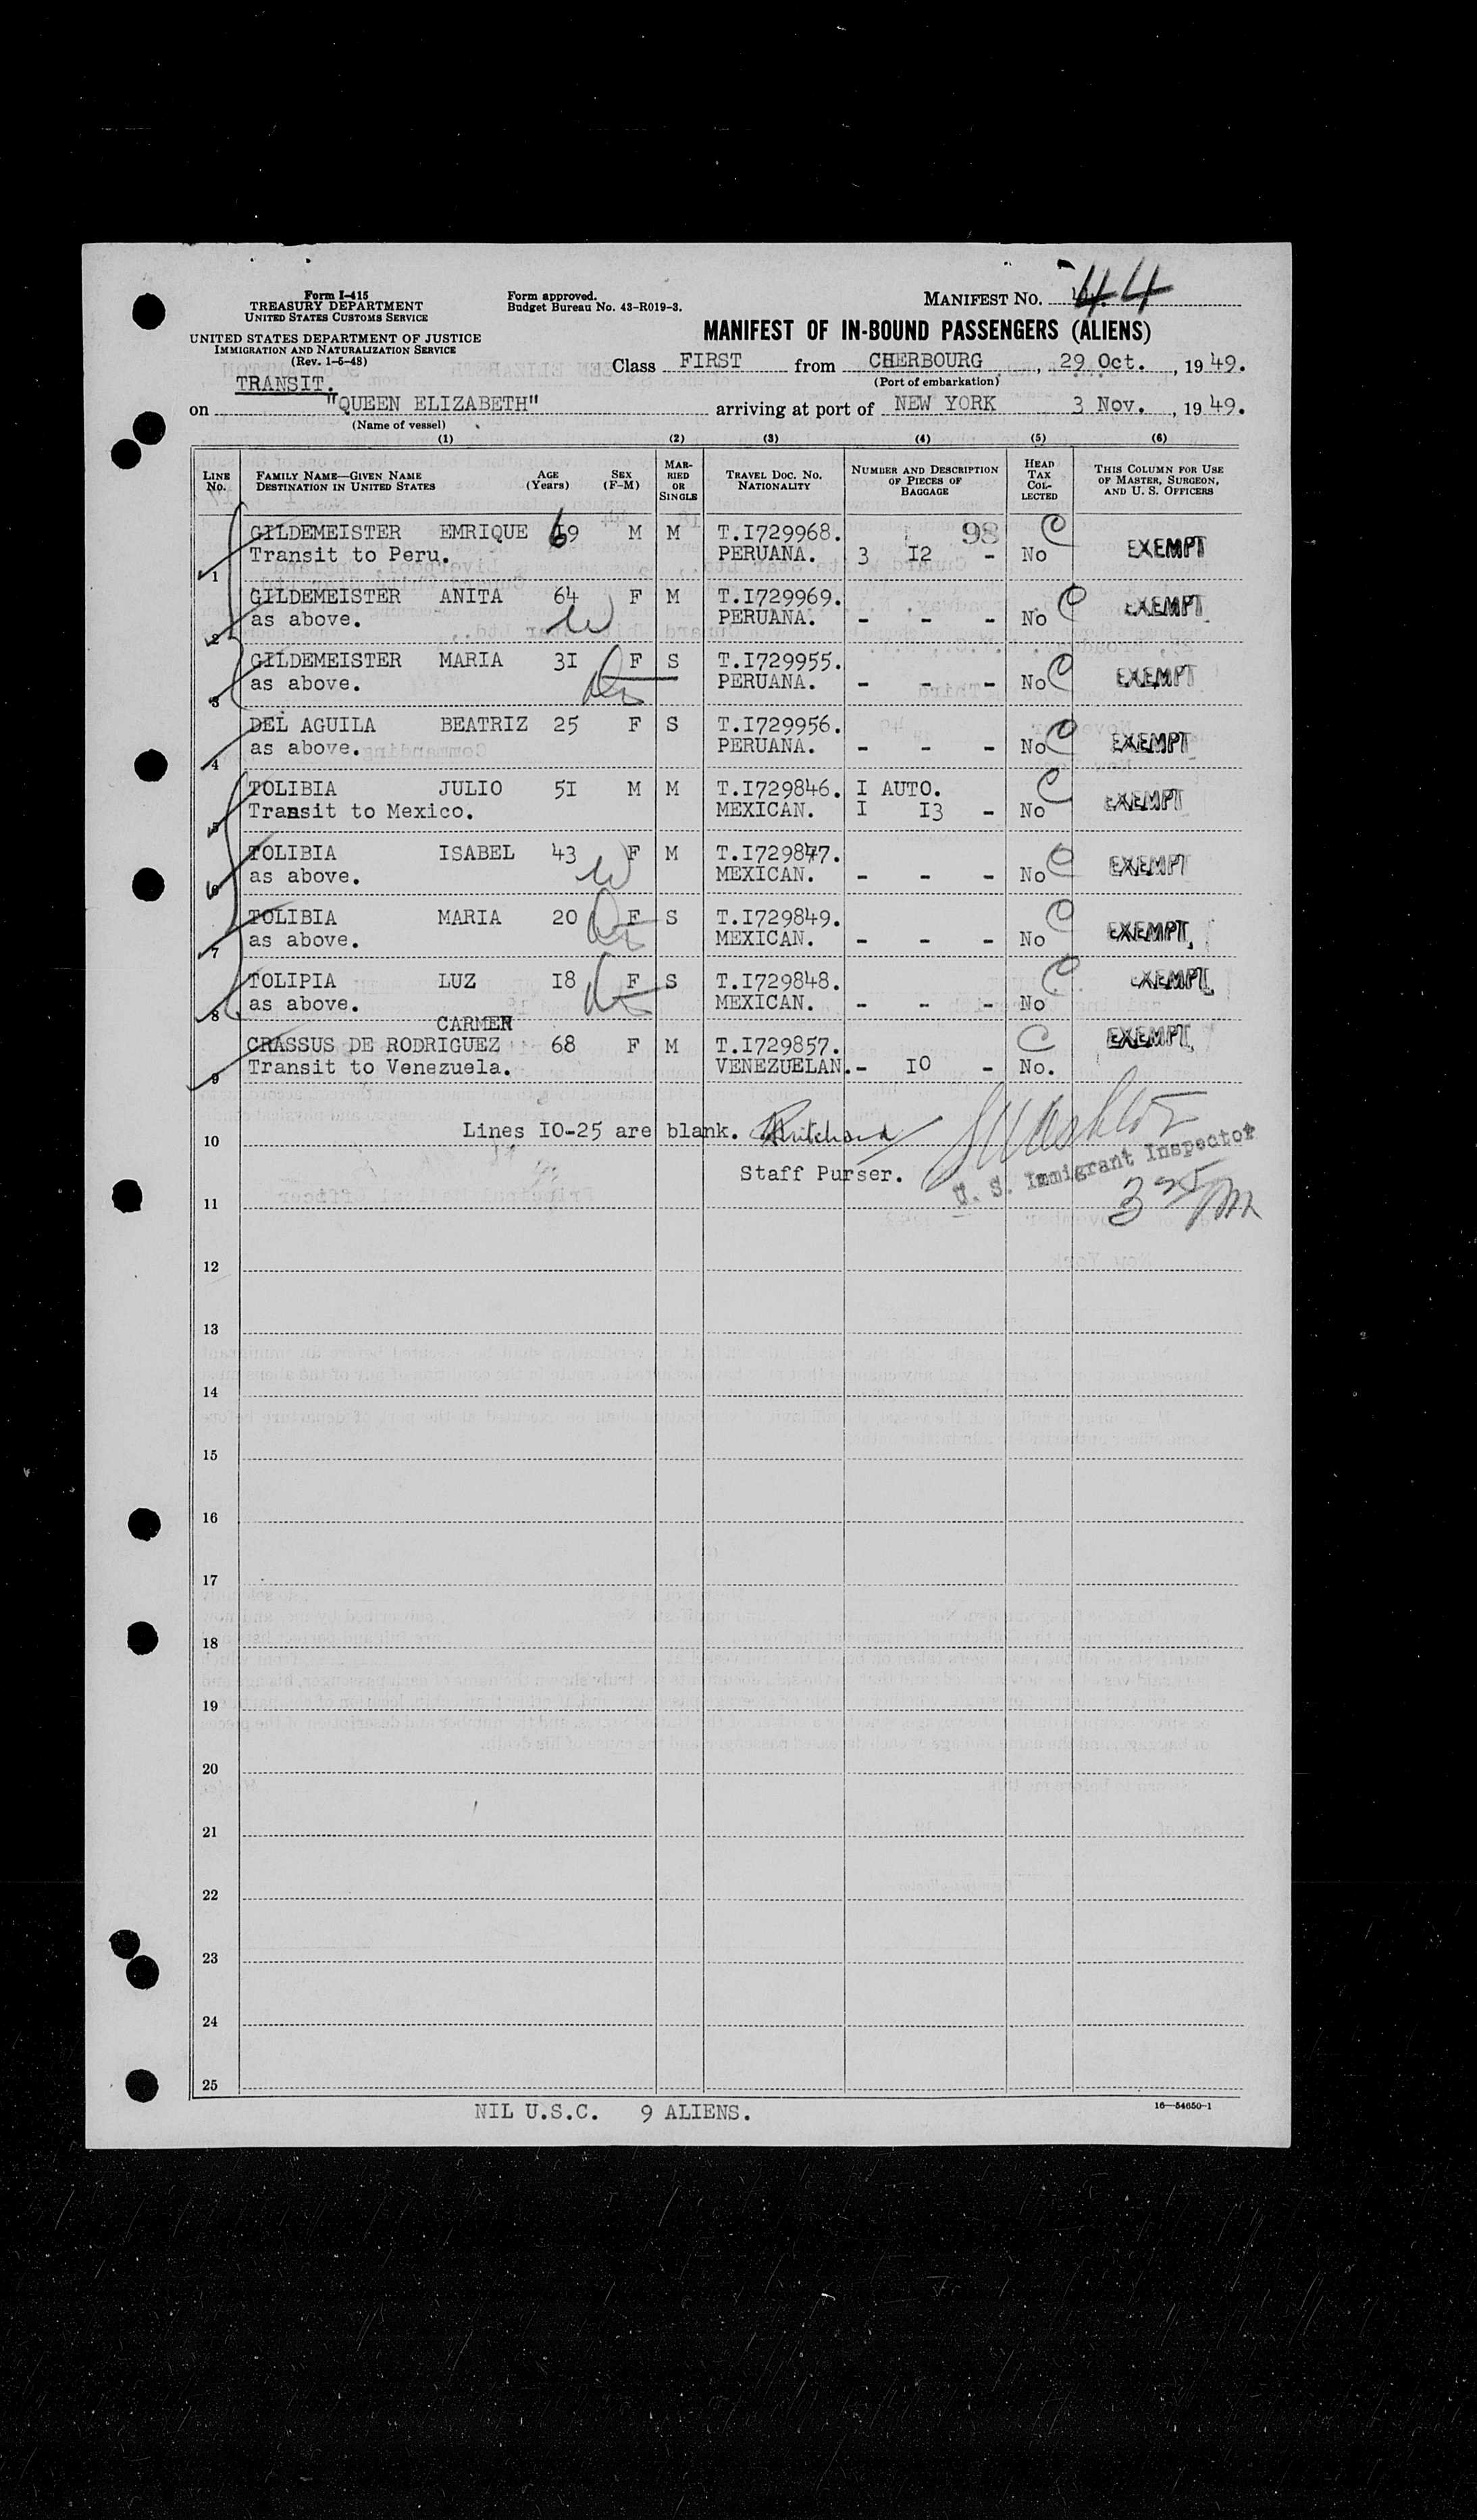 Form I-415
TREASURY DEPARTMENT
UNITED STATES CUSTOMS SERVICE
UNITED STATES DEPARTMENT OF JUSTICE
IMMIGRATION AND NATURALIZATION SERVICE
(Rev. 1-5-48)
Form approved.
Budget Bureau No. 43-R019-3.
MANIFEST NO. 44
MANIFEST OF IN-BOUND PASSENGERS (ALIENS)
Class FIRST from CHERBOURG, 29 Oct., 1949.
(Port of embarkation)
TRANSIT.
on "QUEEN ELIZABETH" arriving at port of NEW YORK 3 Nov., 1949.
(Name of vessel)
(1) (2) (3) (4) (5) (6)
LINE NO. FAMILY NAME—GIVEN NAME DESTINATION IN UNITED STATES AGE (Years) SEX (F-M) MARRIED OR SINGLE TRAVEL DOC. NO. NATIONALITY NUMBER AND DESCRIPTION OF PIECES OF BAGGAGE HEAD TAX COLLECTED THIS COLUMN FOR USE OF MASTER, SURGEON, AND U. S. OFFICERS
GILDEMEISTER EMRIQUE 69 M M T.I729968. 98 C
1 Transit to Peru. PERUANA. 3 I2 - No EXEMPT
GILDEMEISTER ANITA 64 F M T.I729969. C EXEMPT
2 as above. W PERUANA. - - - No
GILDEMEISTER MARIA 3I F S T.I729955. C
3 as above. PERUANA. - - - No EXEMPT
DEL AGUILA BEATRIZ 25 F S T.I729956. C
4 as above. PERUANA. - - - No EXEMPT
TOLIBIA JULIO 5I M M T.I729846. I AUTO. C
5 Transit to Mexico. MEXICAN. I I3 - No EXEMPT
TOLIBIA ISABEL 43 F M T.I729847. C
6 as above. W MEXICAN. - - - No EXEMPT
TOLIBIA MARIA 20 F S T.I729849. C
7 as above. MEXICAN. - - - No EXEMPT
TOLIPIA LUZ I8 F S T.I729848. C EXEMPT
8 as above. MEXICAN. - - - No
CARMEN
CRASSUS DE RODRIGUEZ 68 F M T.I729857. C EXEMPT
9 Transit to Venezuela. VENEZUELAN. - I0 - No.
10 Lines I0-25 are blank. Pritchard
Staff Purser.
U. S. Immigrant Inspector
11
12
13
14
15
16
17
18
19
20
21
22
23
24
25
NIL U.S.C. 9 ALIENS.
16—54650-1